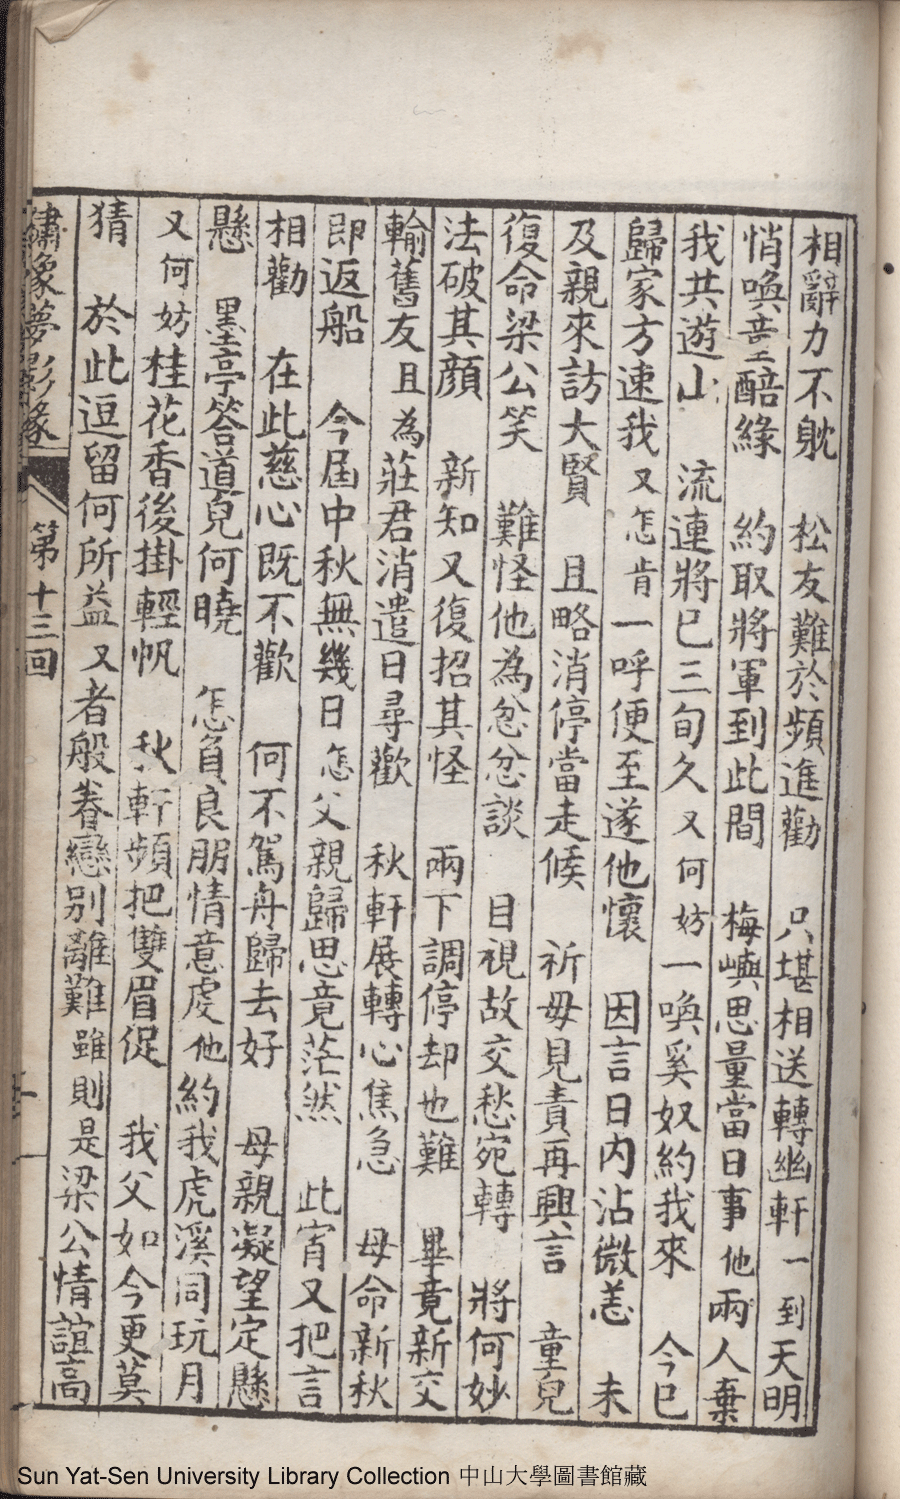 相辭力不躭　松友難於頻進勸　只堪相送轉幽軒一到天明
悄喚音醅緣　約取將軍到此間　梅嶼思量當日事他兩人棄
我共遊山　流連將已三旬久又何妨一喚奚奴約我來　今已
歸家方速我又怎肯一呼便至遂他懷　因言日內沾微恙　未
及親來訪大賢　且略消停當走候　祈毋見責再興言　童兒
復命梁公笑　難怪他為忿忿談　目視故交愁宛轉　將何妙
法破其顔　新知又復招其怪　兩下調停却也難　畢竟新交
輸舊友且為莊君消遣日尋歡　秋軒展轉心焦急　母命新秋
即返船　今屆中秋無幾日怎父親歸思竟茫然　此宵又把言
相勸　在此慈心既不歡　何不駕舟歸去好　母親凝望定懸
懸　墨亭答道皃何曉　怎負良朋情意虔他約我虎溪同玩月
又何妨桂花香後掛輕帆　秋軒頻把雙眉促　我父如今更莫
猜　於此逗留何所益又者般眷戀別離難雖則是梁公情誼高
繡像夢影緣　第十三回
Sun Yat-Sen University Library Collection 中山大學圖書館藏